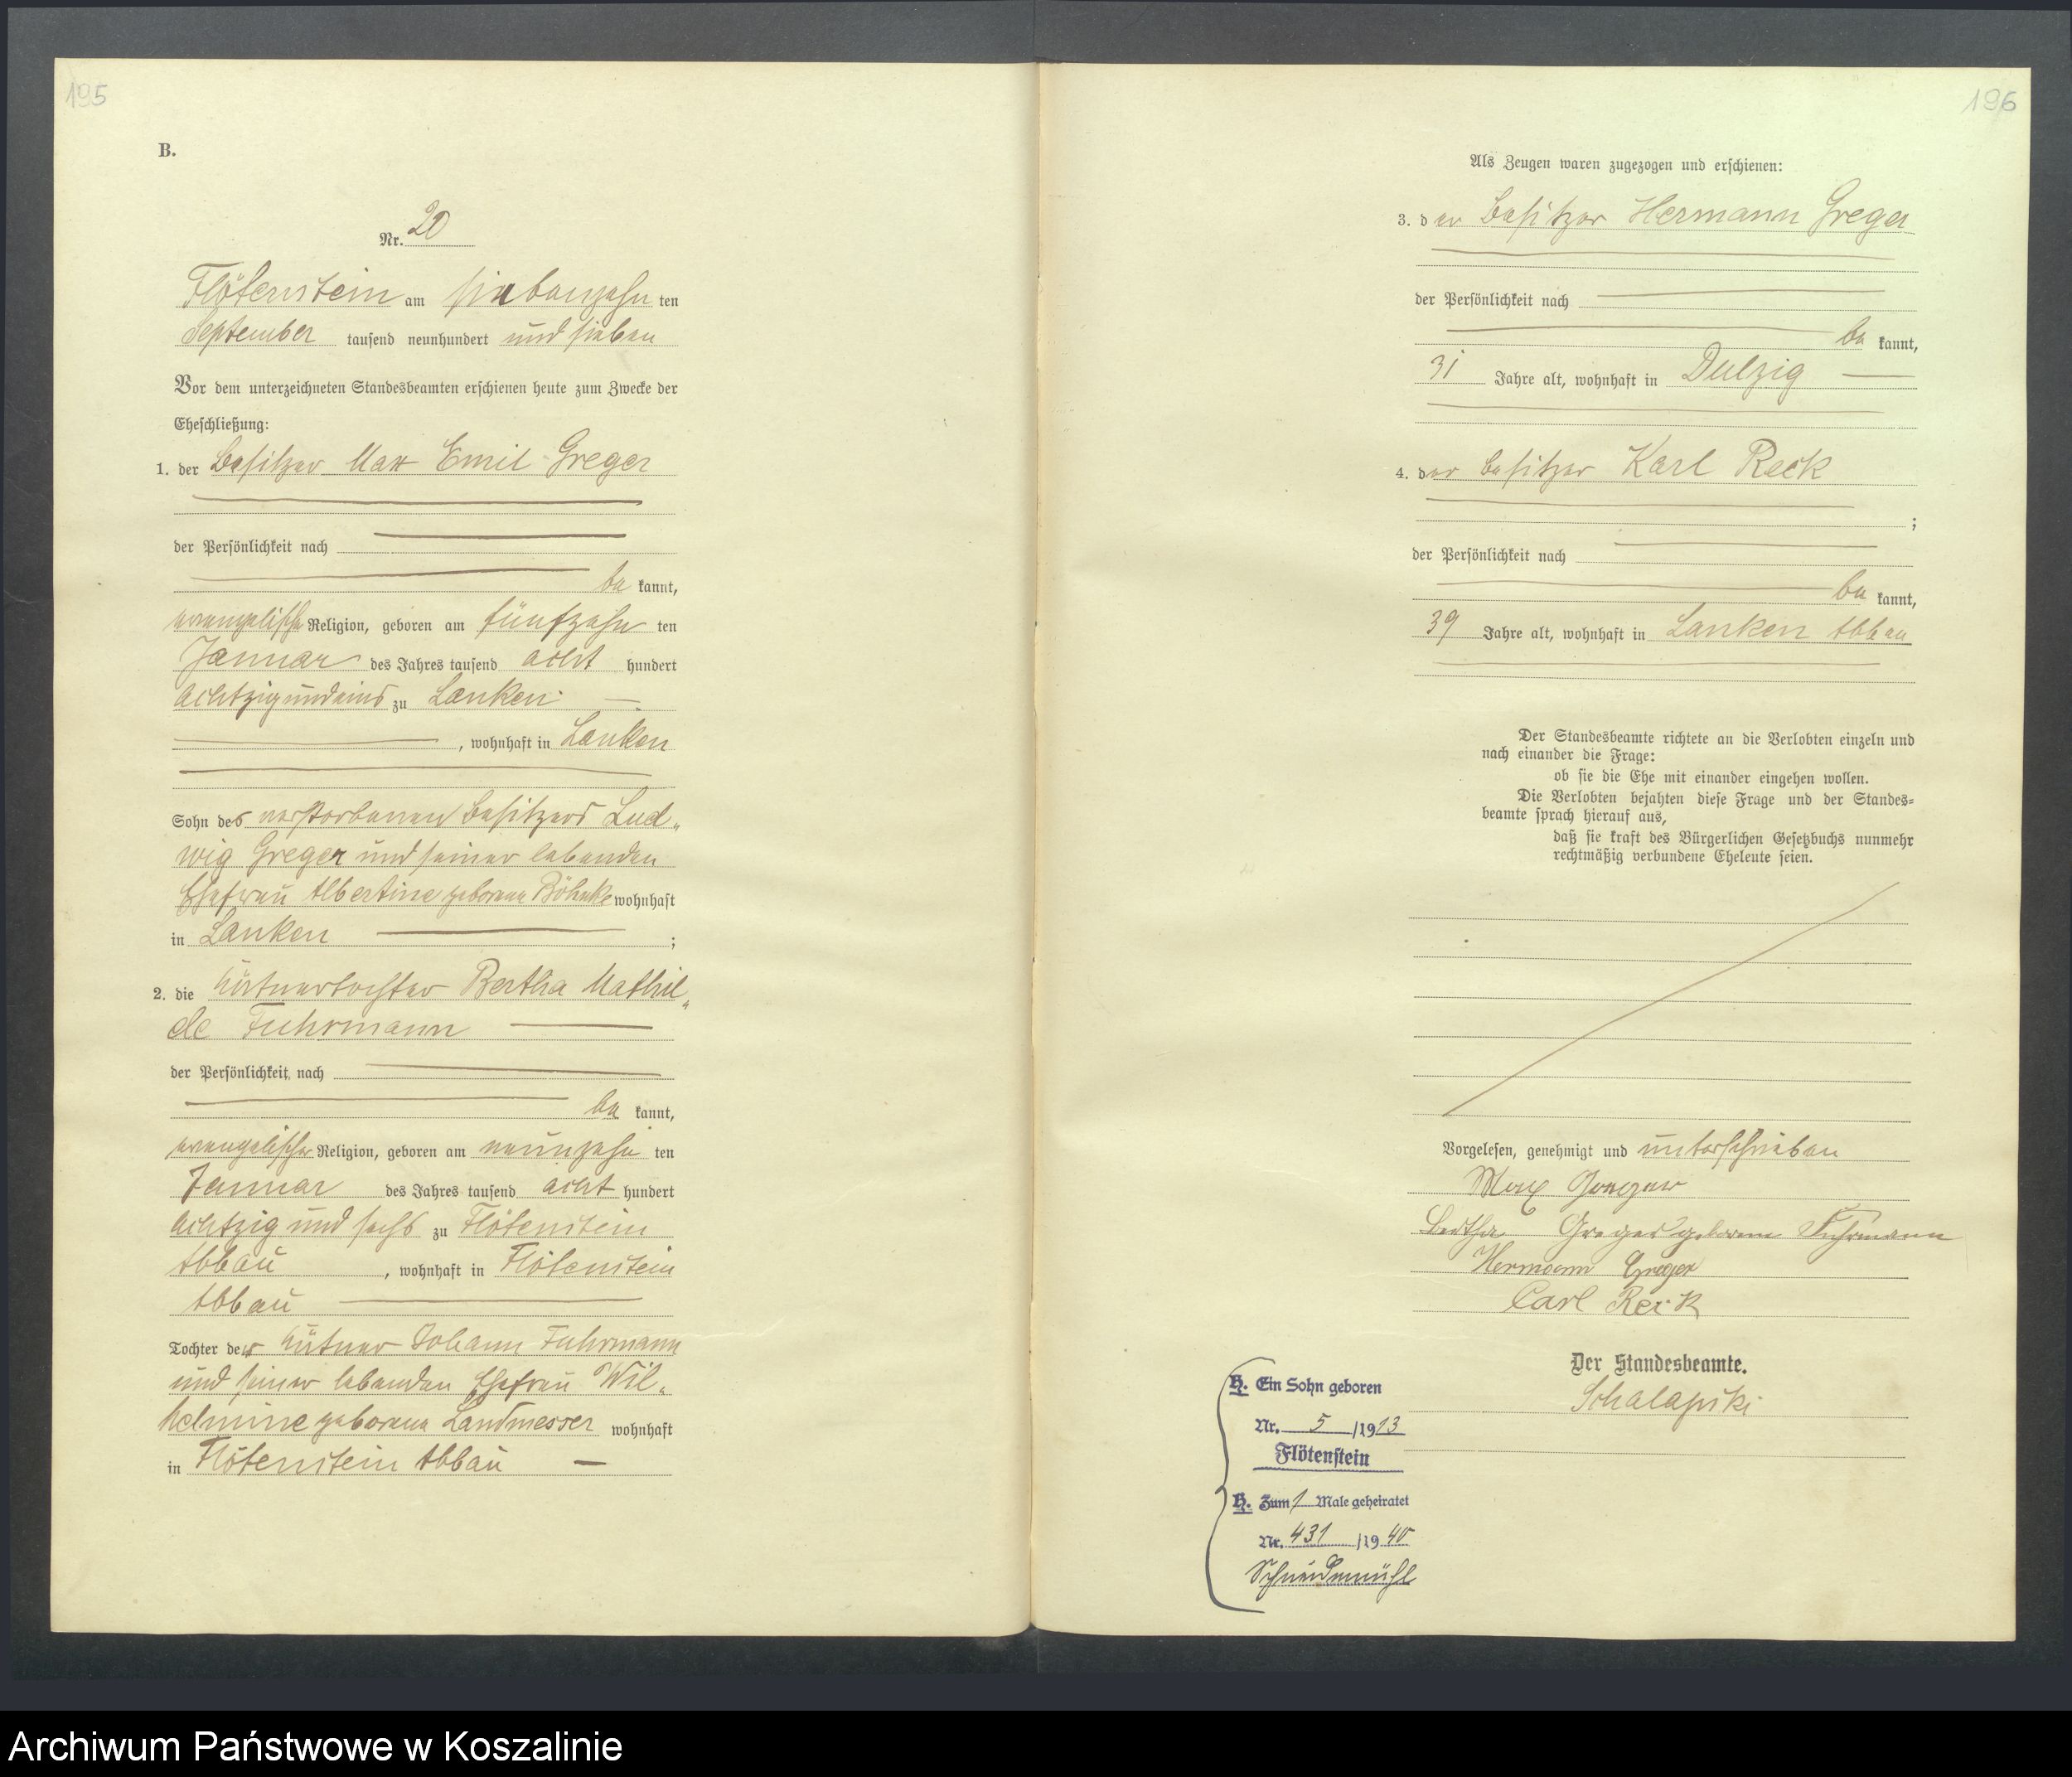 195
B.
Nr. 20
Flötenstein am siebenzehn ten
September tausend neunhundert und sieben
Vor dem unterzeichneten Standesbeamten erschienen heute zum Zwecke der
Eheschließung:
1. der Besitzer Max Emil Greger
der Persönlichkeit nach
be kannt,
evangelischer Religion, geboren am fünfzehn ten
Januar des Jahres tausend acht hundert
achtzigundeins zu Lanken
, wohnhaft in Lanken
Sohn des verstorbenen Besitzers Lud„
wig Greger und seiner lebenden
Ehefrau Albertine geborene Böhnke wohnhaft
in Lanken ;
2. die Bertha Mathil„
de Fuhrmann
der Persönlichkeit nach
be kannt,
evangelischer Religion, geboren am neunzehn ten
Januar des Jahres tausend acht hundert
achtzig und sechs zu Flötenstein
Abbau , wohnhaft in Flötenstein
Abbau
Tochter des Johann Fuhrmann
und seiner lebenden Ehefrau Wil„
helmine geborene Landmesser wohnhaft
in Flötenstein Abbau
196
Als Zeugen waren zugezogen und erschienen:
3. der Besitzer Hermann Greger
der Persönlichkeit nach
be kannt,
31 Jahre alt, wohnhaft in Dulzig
4. der Besitzer Karl Reck
;
der Persönlichkeit nach
be kannt,
39 Jahre alt, wohnhaft in Lanken Abbau
Der Standesbeamte richtete an die Verlobten einzeln und
nach einander die Frage:
ob sie die Ehe mit einander eingehen wollen.
Die Verlobten bejahten diese Frage und der Standes=
beamte sprach hierauf aus,
daß sie kraft des Bürgerlichen Gesetzbuchs nunmehr
rechtmäßig verbundene Eheleute seien.
Vorgelesen, genehmigt und unterschrieben
Max Greger
Bertha Greger geborene Fuhrmann
Hermann Greger
Carl Reck
Der Standesbeamte.
H. Ein Sohn geboren
Nr. 5 /1913
Flötenstein
H. Zum 1 Male geheiratet
Nr. 431 /19 40
Schneidemühl
Archiwum Państwowe w Koszalinie